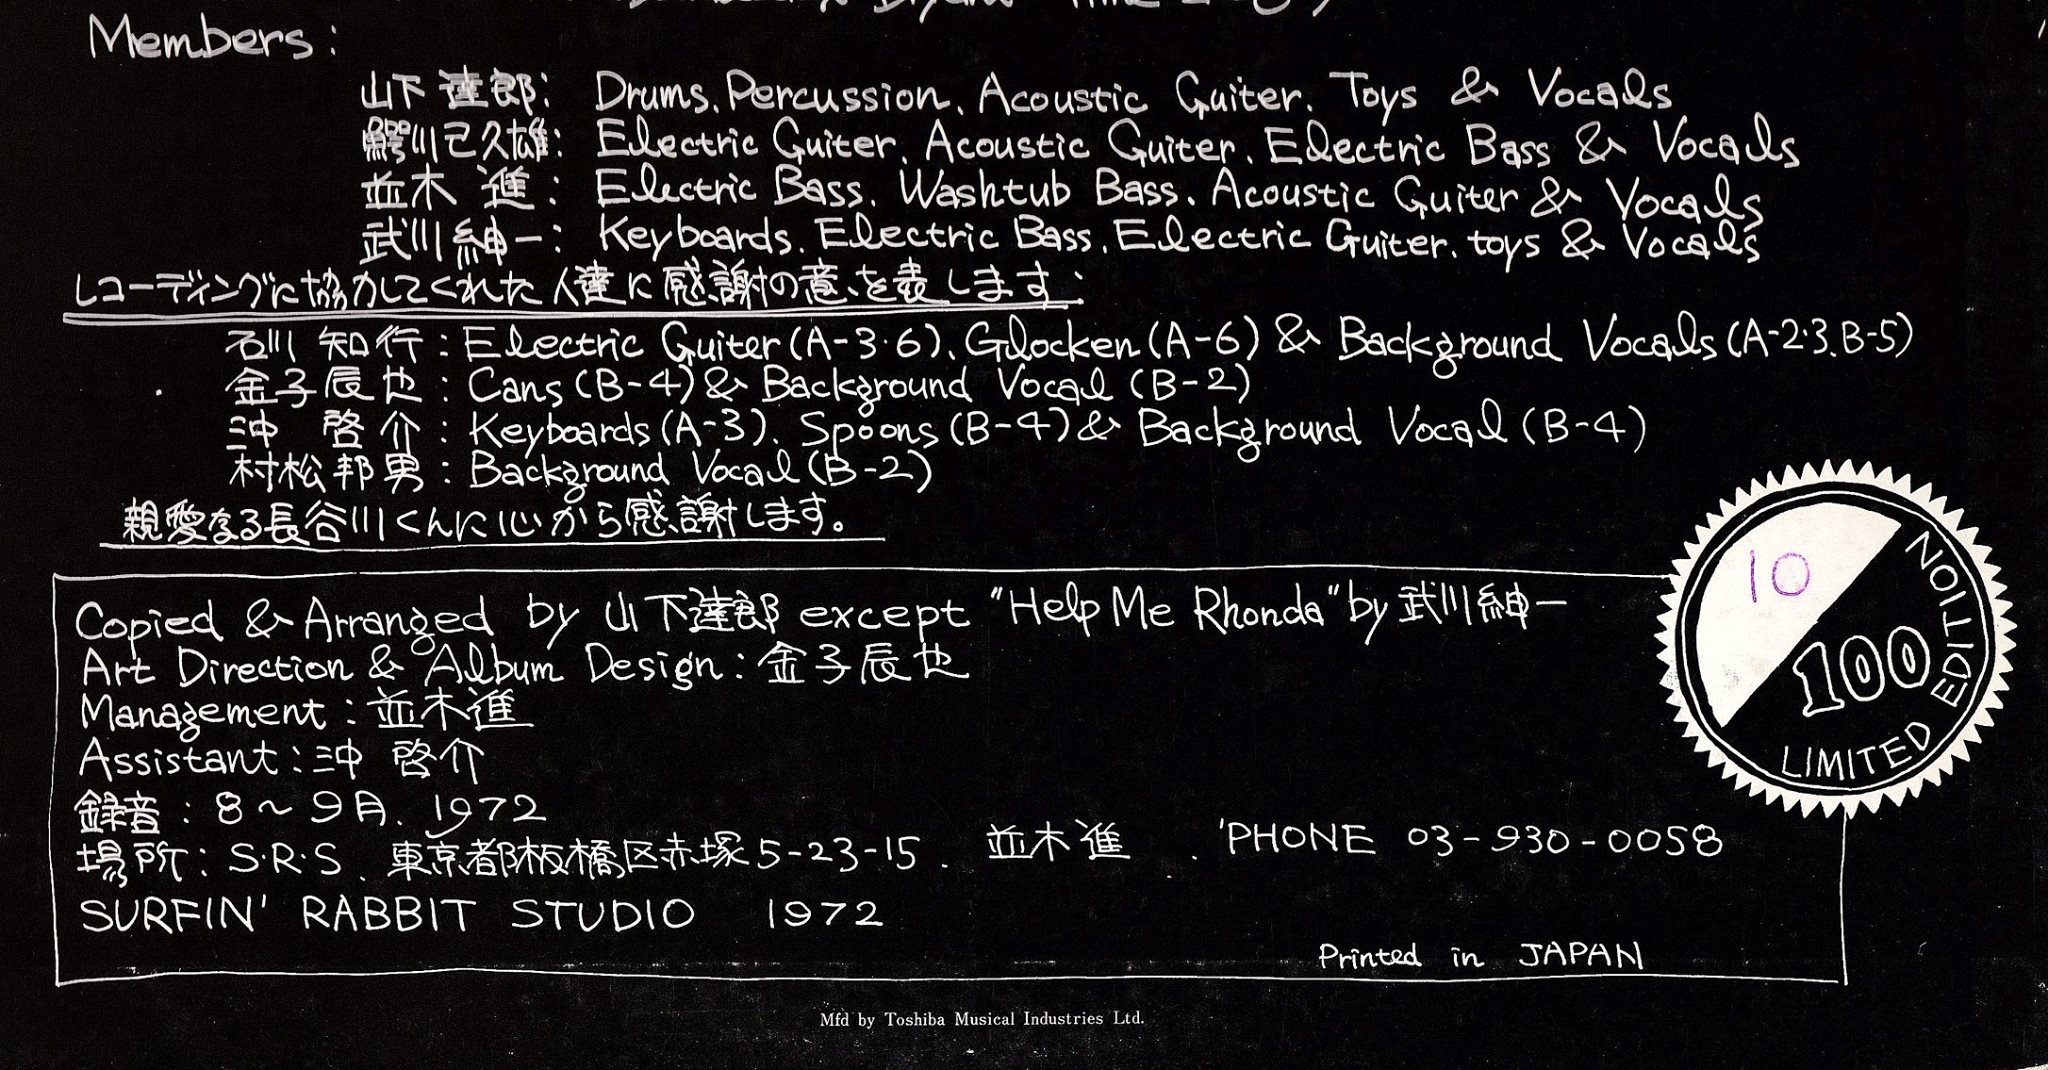 Members:
山下達郎: Drums. Percussion. Acoustic Guiter. Toys & Vocals
鰐川己久雄: Electric Guiter. Acoustic Guiter. Electric Bass & Vocals
並木 進: Electric Bass. Washtub Bass. Acoustic Guiter & Vocals
武川紳一: Keyboards. Electric Bass. Electric Guiter. toys & Vocals
レコーディングに協力してくれた人達に感謝の意を表します:
石川 知行: Electric Guiter (A-3·6). Glocken (A-6) & Background Vocals (A-2·3. B-5)
金子辰也: Cans (B-4) & Background Vocal (B-2)
沖 啓介: Keyboards (A-3). Spoons (B-4) & Background Vocal (B-4)
村松邦男: Background Vocal (B-2)
親愛なる長谷川くんに心から感謝します。
Copied & Arranged by 山下達郎 except "Help Me Rhonda" by 武川紳一
Art Direction & Album Design: 金子辰也
Management: 並木進
Assistant: 沖 啓介
録音: 8~9月. 1972
場所: S·R·S. 東京都板橋区赤塚5-23-15. 並木進. 'PHONE 03-930-0058
SURFIN' RABBIT STUDIO 1972
Printed in JAPAN
10
100
LIMITED EDITION
Mfd by Toshiba Musical Industries Ltd.